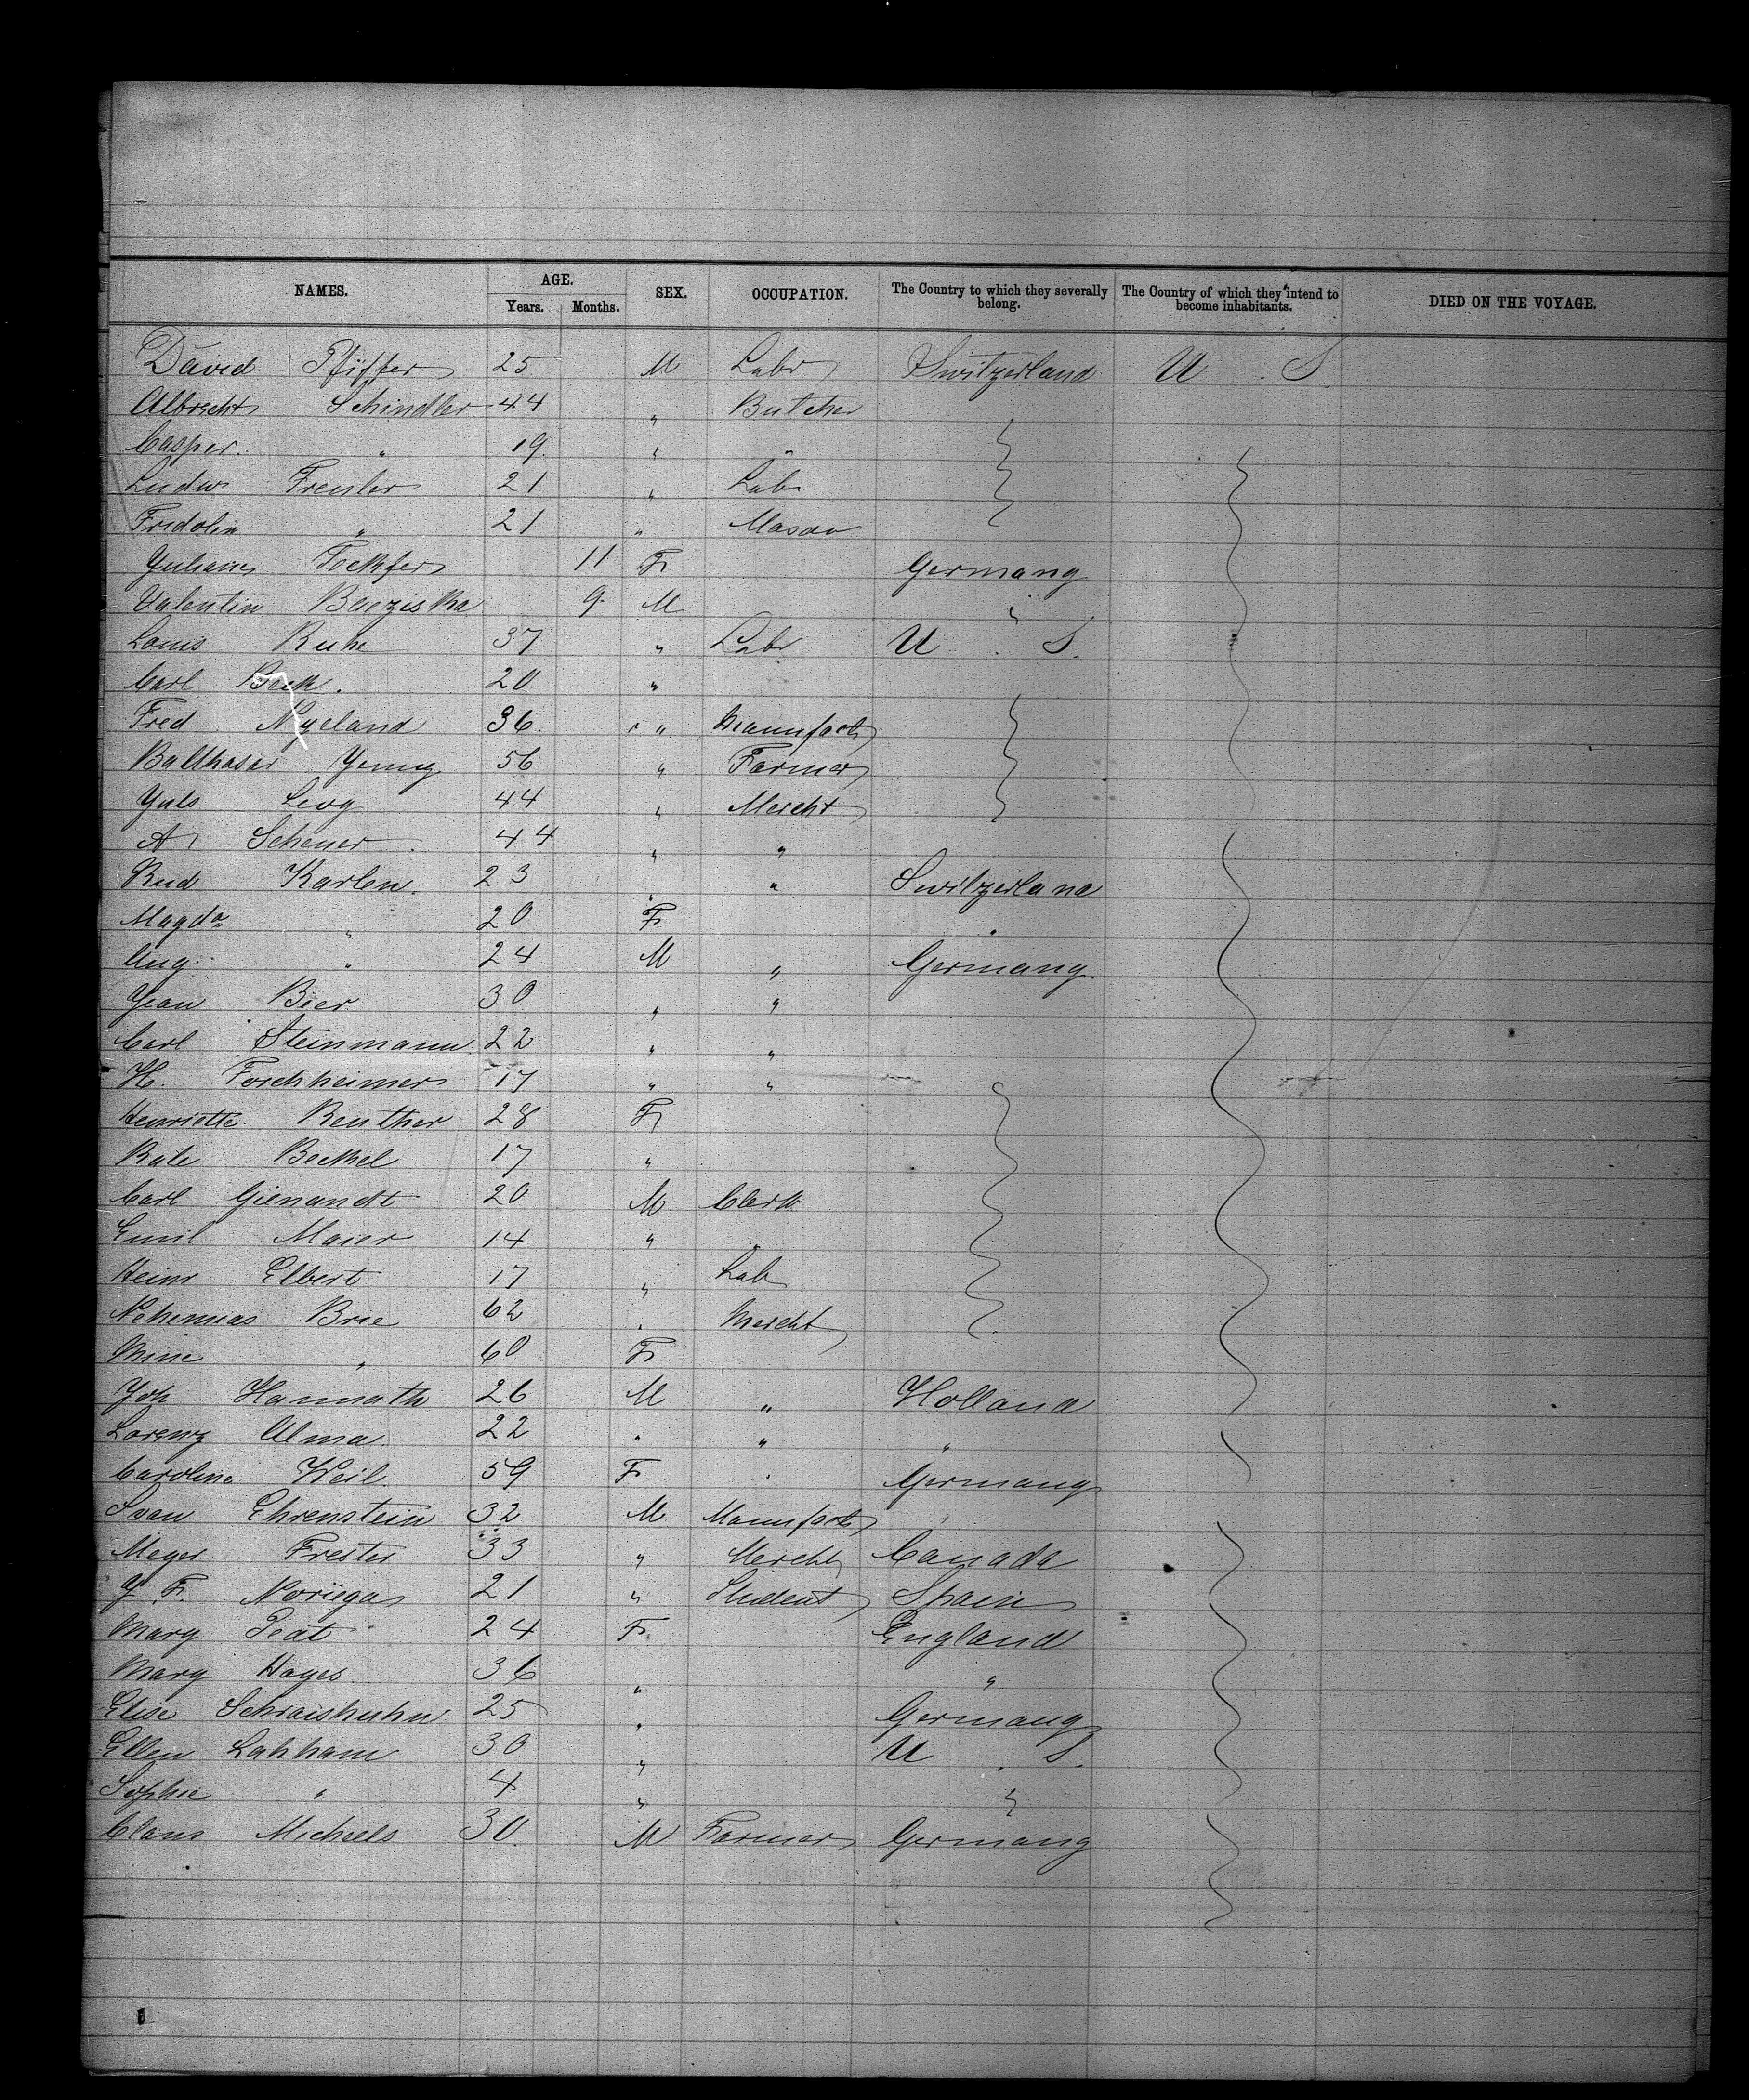 NAMES. AGE. SEX. OCCUPATION. The Country to which they severally belong. The Country of which they intend to become inhabitants. DIED ON THE VOYAGE.
Years. Months.
David Pfiffer 25 M Labr Switzerland U. S.
Albrecht Schindler 44 " Butcher
Casper " 19 " "
Ludw Freuler 21 " Lab
Fridolin " 21 " Mason
11 F Germany
Valentin 9 M "
Louis Ruhe 37 " Labr U. S.
Carl Beck. 20 "
Fred Nyeland 36. " Manufact
Balthasar Yenny 56 " Farmer
Yuls Levy 44 " Mercht
A Scheuer 44 " "
Rud Karlen. 23 " " Switzerland
Magda " 20 F "
Aug. " 24 M " Germany
Yean Bier 30 " "
Carl Steinmann 22 " "
H. Forchheimer 17 " "
Henriette Reuther 28 F
Bechel 17 "
Carl Gienandt 20 M Clerk
Emil Maier 14 " "
Heinr Elbert 17 " Lab
Nehemias Brie 62 " Mercht
Mine " 60 F
Joh Hannath 26 M " Holland
Lorenz Alma 22 " " "
Caroline Weil. 59 F Germany
Ehrenstein 32 M Manufact
Meyer 33 " Mercht Canada
Y. F. Noriega 21 " Student Spain
Mary Peat 24 F England
Mary Hayes 36 " "
Elise Schraishuhn 25 " Germany
Ellen Lahham 30 " U. S.
Sophie " 4 " "
Claus Michels 30. M Farmer Germany